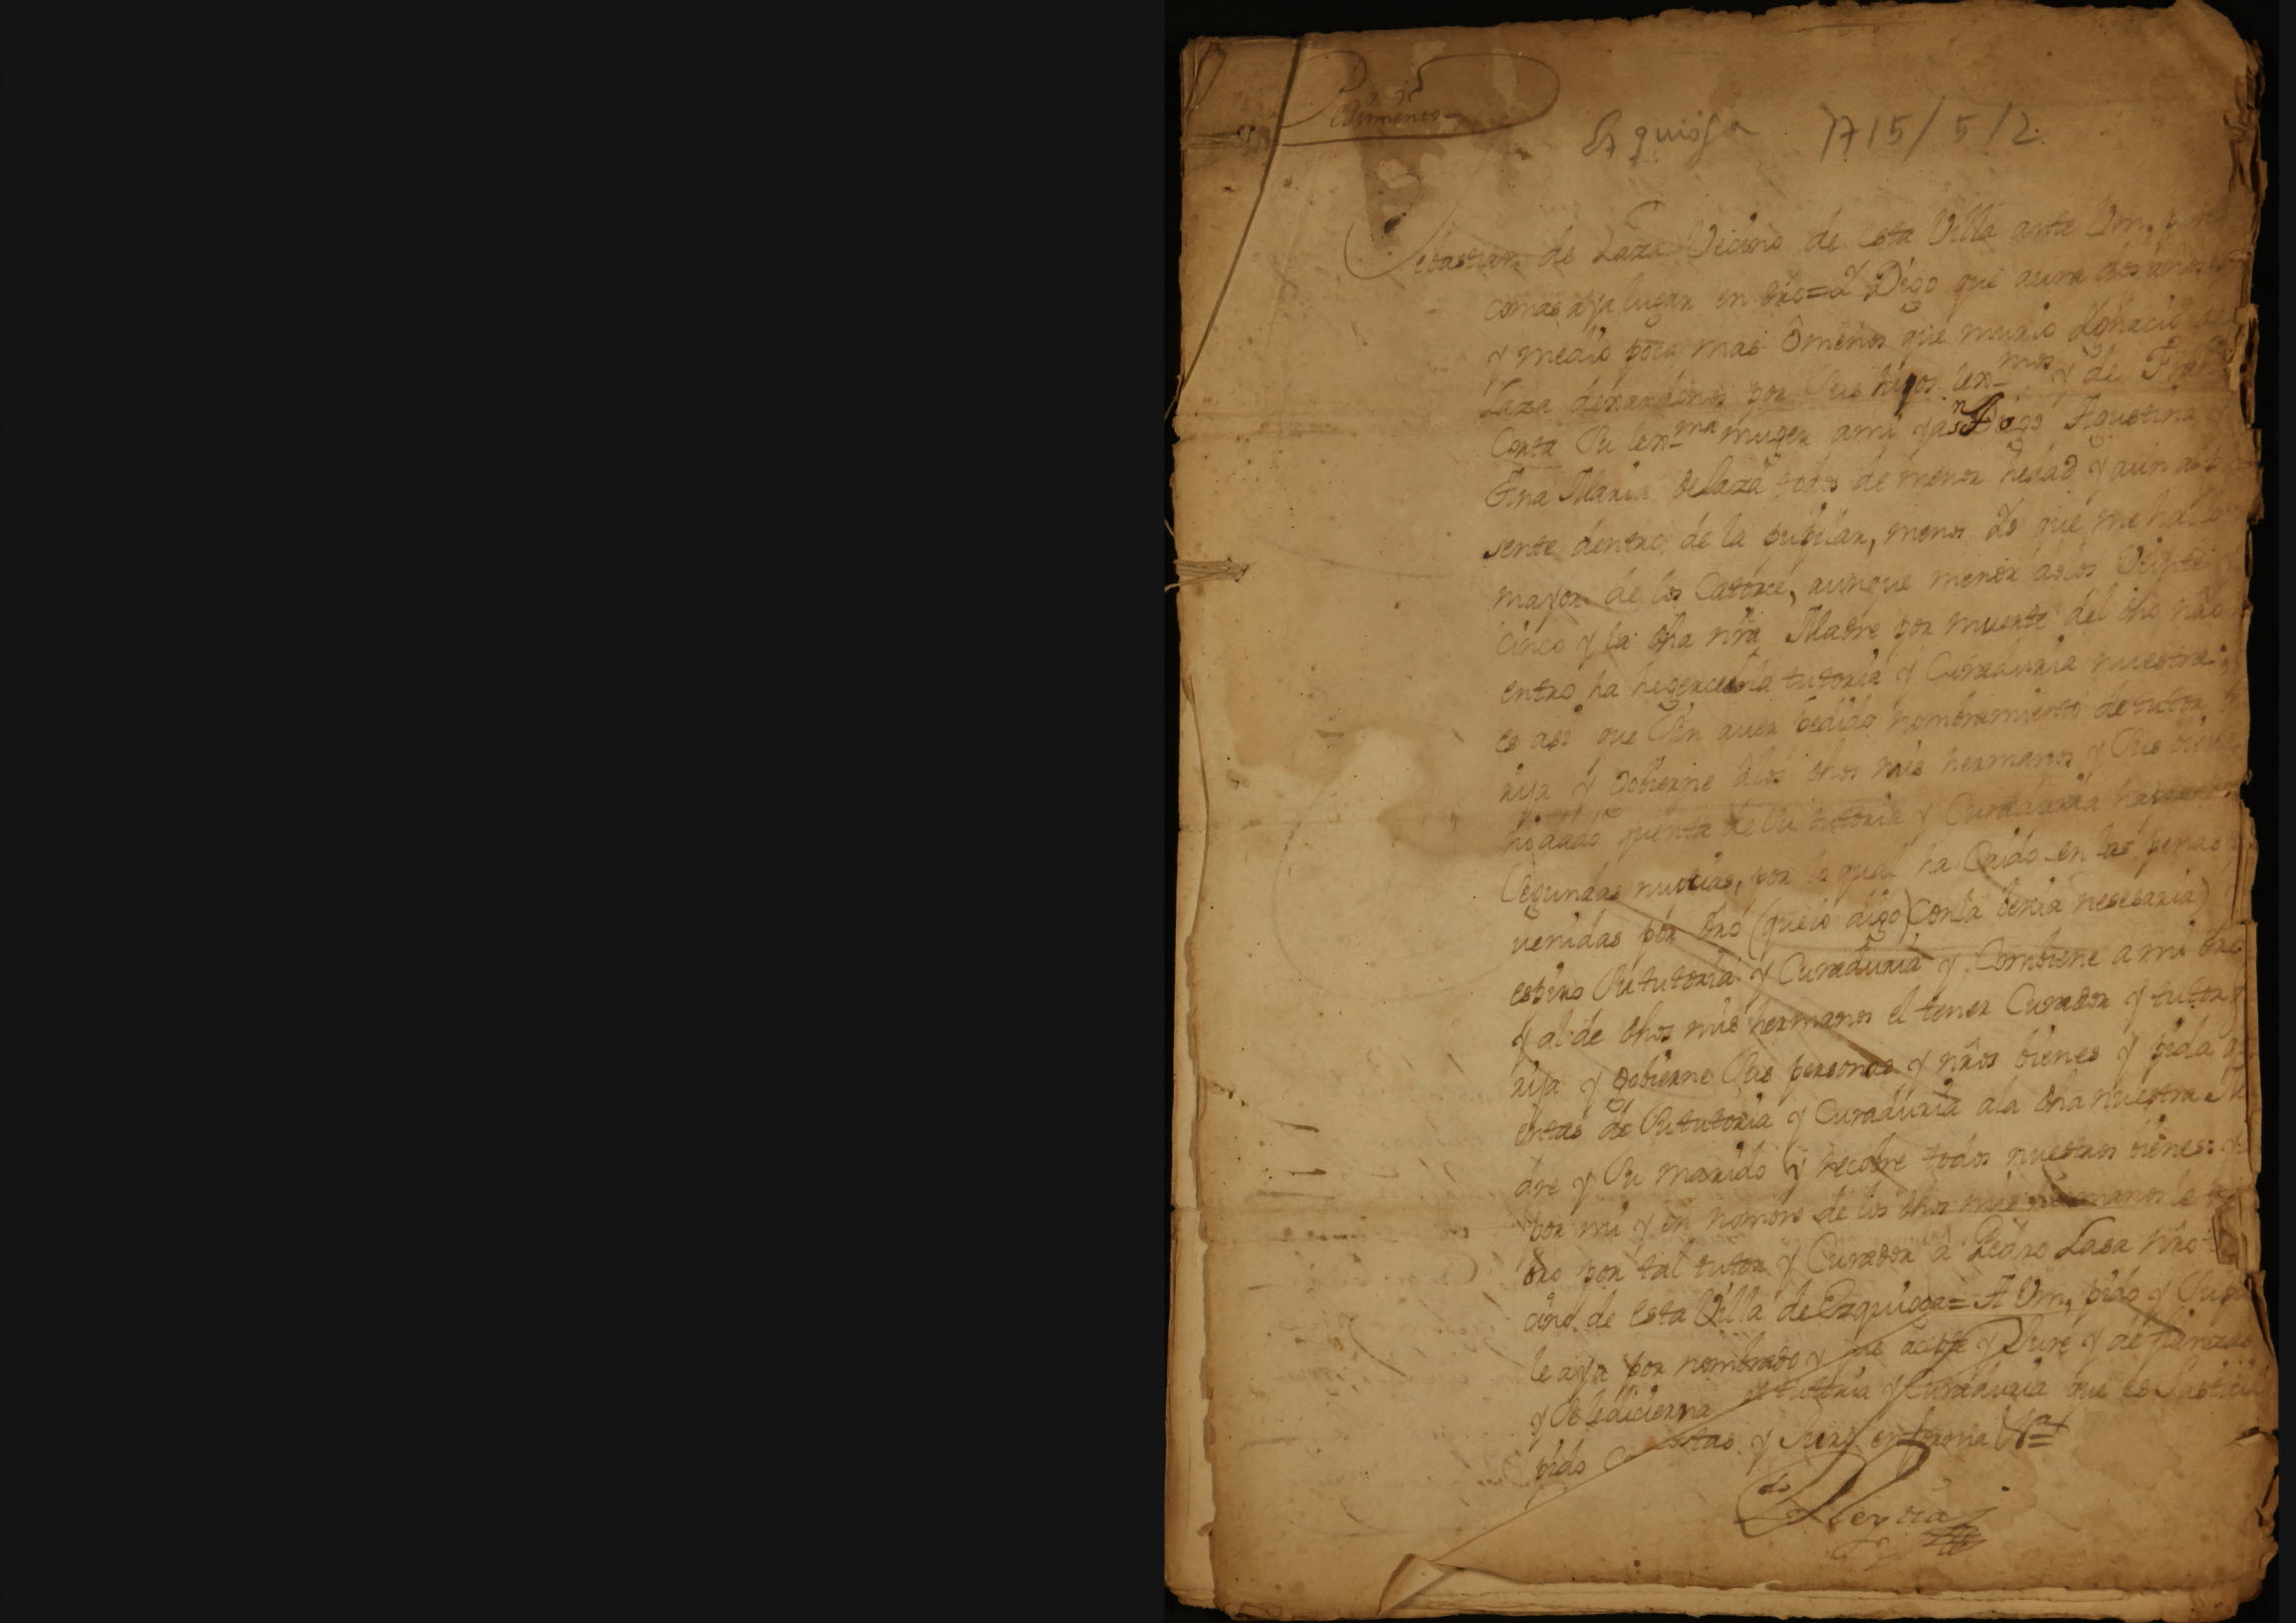 Pedimento
Ezquioga 1715/5/2
Sebastian de Laza Vecino de esta Villa ante Vm, pare
comas aya lugar en dro= Y Digo que aura dos años
y medio poco mas ômenos que murio Ygnacio de
Laza dexandonos por sus hijos lex-mos y de Fran
Corta su lex-ma muger ami yasn Diego Agustina y
Ana Maria delaza todos de menor hedad y aun alpre
sente dentro de la pupilar, menos Yo que me hallo
mayor de los Catorce, aunque menor delos Veinte y
cinco y la dha nra Madre por muerte del dho nro
entro ha hegercer la tutoria y Curaduria nuestra,
es asi que sin auer pedido nombramiento de tutor
rija y gobierne alos dhos mis hermanos y sus bienes
ni dado quenta de su tutoria y Curaduria ha
segundas nupcias, por lo qual ha Caido en las penas
uenidas por dro (quelo digo) Conla Venia nesesaria)
espiro su tutoria y Curaduria y Combiene a mi dro
y al de dhos mis hermanos el tener Curador y tutor
rija y gobierne sus personas y nros bienes y pida qu
entas de su tutoria y Curaduria ala dha nuestra Ma
dre y su marido y recobre todos nuestros bienes: y
por mi y en nombre de los dhos mis hermanos le nom
bro por tal tutor y Curador a Pedro Lasa nro
cino de esta Villa de Ezquioga= A Vm, pido y sup
le aya por nombrado y que acepte y Jure y de fianzas
y se le dicierna tutoria y Curaduria que es Justicia
pido Costas y Juro en forma Va
Ldo Heredia